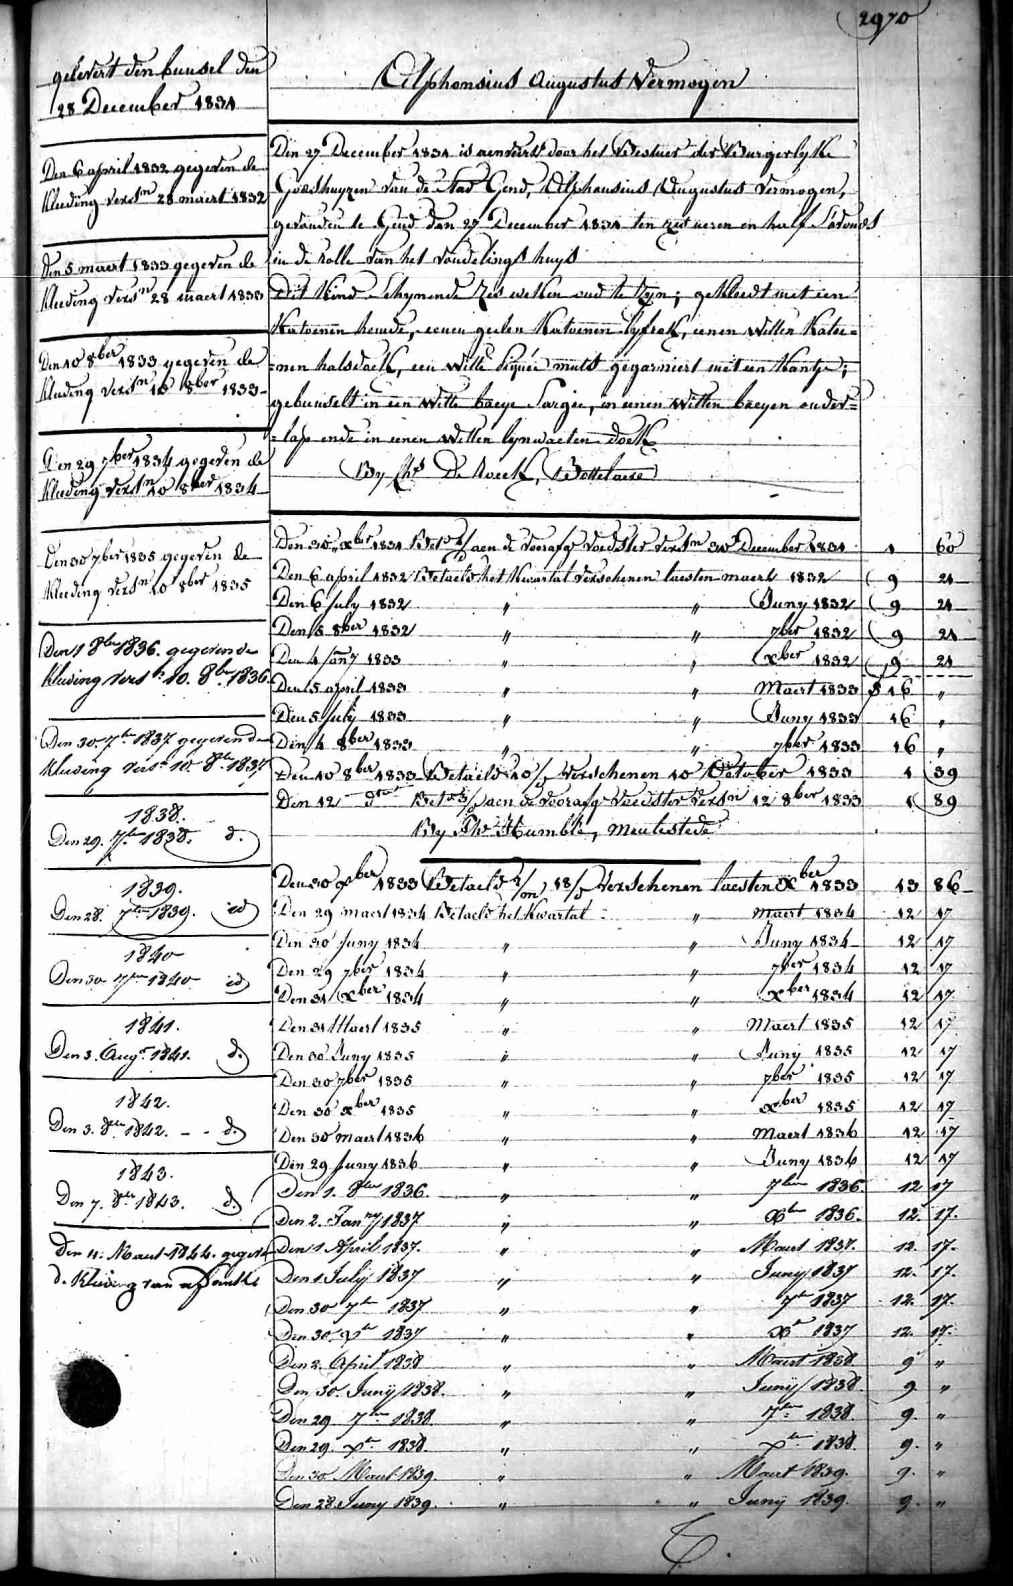 2970
gelevert den bunsel den
28 December 1831
Den 6 april 1832 gegeven de
kleeding versn 28 maert 1832
Den 5 maert 1833 gegeven de
kleeding versn 28 maert 1833
Den 10 8ber 1833 gegeven de
kleeding versn 10 8ber 1833
Den 29 7ber 1834 gegeven de
kleeding versn 10 8ber 1834
Den 30 7ber 1835 gegeven de
kleeding versn 10 8ber 1835
Den 1 8ber 1836. gegeven de
kleeding versn 10. 8ber 1836.
Den 30. 7ber 1837 gegeven de
kleeding versn 10. 8ber 1837
1838.
Den 29. 7ber 1838. d.
1839.
Den 28. 7ber 1839. id
1840
Den 30 7ber 1840 id
1841.
Den 3. Augt 1841. d.
1842.
Den 3. 8ber 1842. - - d.
1843.
Den 7. 8ber 1843. d.
Den 11. Maert 1844. gegeven
d. kleeding van
Alphonsius Augustus Vermogen
Den 27 December 1831 is aenveird door het Bestuer der Burgerlyke
Godshuyzen van de Stad Gend, Alphonsius Augustus Vermogen,
gevonden te Gend den 27 December 1831 ten zes uren en half s'avonds
in de rolle van het vondelings huys
Dit kind schynende zes weken oud te zyn; gekleedt met een
kattoenen hemde, eenen geelen kattoenen lyfrok, eenen witten kattoe=
=nen halsdoek, een witte piquée muts gegarniert met een kantje;
gebunselt in een witte baeye sargie, en eenen witten baeyen onder=
=lap ende in eenen witten lynwaeten doek
By Chs De Roeck, Bottelaere
Den 30 xber 1831 Bet aen de voorafg voedster versn 30 December 1831 1 60
Den 6 april 1832 Betaeld het kwartal verschenen laesten maert 1832 9 21
Den 6 July 1832 " " Juny 1832 9 21
Den 5 8ber 1832 " " 7ber 1832 9 21
Den 4 Jany 1833 " " xber 1832 9 21
Den 5 april 1833 " " Maert 1833 16 "
Den 5 July 1833 " " Juny 1833 16 "
Den 4 8ber 1833 " " 7ber 1833 16 "
Den 10 8ber 1833 Betaeld 10/ verschenen 10 October 1833 1 39
Den 12 dito Bet aen de voorafg voedster versn 12 8ber 1833 1 89
By Humblé, Meulestede
Den 30 xber 1833 Betaeld 2/m 18/ verschenen laesten xber 1833 13 86
Den 29 maert 1834 Betaeld het kwartal " maert 1834 12 17
Den 30 Juny 1834 " " Juny 1834 12 17
Den 29 7ber 1834 " " 7ber 1834 12 17
Den 31 xber 1834 " " xber 1834 12 17
Den 31 Maert 1835 " " Maert 1835 12 17
Den 30 Juny 1835 " " Juny 1835 12 17
Den 30 7ber 1835 " " 7ber 1835 12 17
Den 30 xber 1835 " " xber 1835 12 17
Den 30 maert 1836 " " Maert 1836 12 17
Den 29 Juny 1836 " " Juny 1836 12 17
Den 1. 8ber 1836. " " 7ber 1836. 12 17
Den 2. Janry 1837 " " Xber 1836. 12. 17.
Den 1 April 1837. " " Maert 1837. 12. 17.
Den 1 July 1837 " " Juny 1837 12. 17.
Den 30 7ber 1837 " " 7ber 1837 12. 17.
Den 30. xber 1837 " " Xber 1837 12. 17.
Den 2. April 1838 " " Maert 1838 9 "
Den 30. Juny 1838. " " Juny 1838 9 "
Den 29 7ber 1838 " " 7ber 1838 9. "
Den 29. xber 1838 " " xber 1838. 9. "
Den 30 Maert 1839. " " Maert 1839. 9. "
Den 28 Juny 1839. " " Juny 1839. 9. "